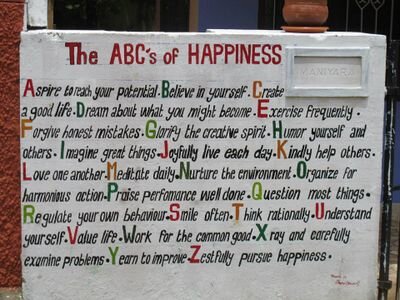 The ABC's of HAPPINESS
MANIYARA
Aspire to reach your potential. Believe in yourself. Create
a good life. Dream about what you might become. Exercise frequently.
Forgive honest mistakes. Glorify the creative spirit. Humor yourself and
others. Imagine great things. Joyfully live each day. Kindly help others.
Love one another. Meditate daily. Nurture the environment. Organize for
harmonious action. Praise perfomance well done. Question most things.
Regulate your own behaviour. Smile often. Think rationally. Understand
yourself. Value life. Work for the common good. Xray and carefully
examine problems. Yearn to improve. Zestfully pursue happiness.